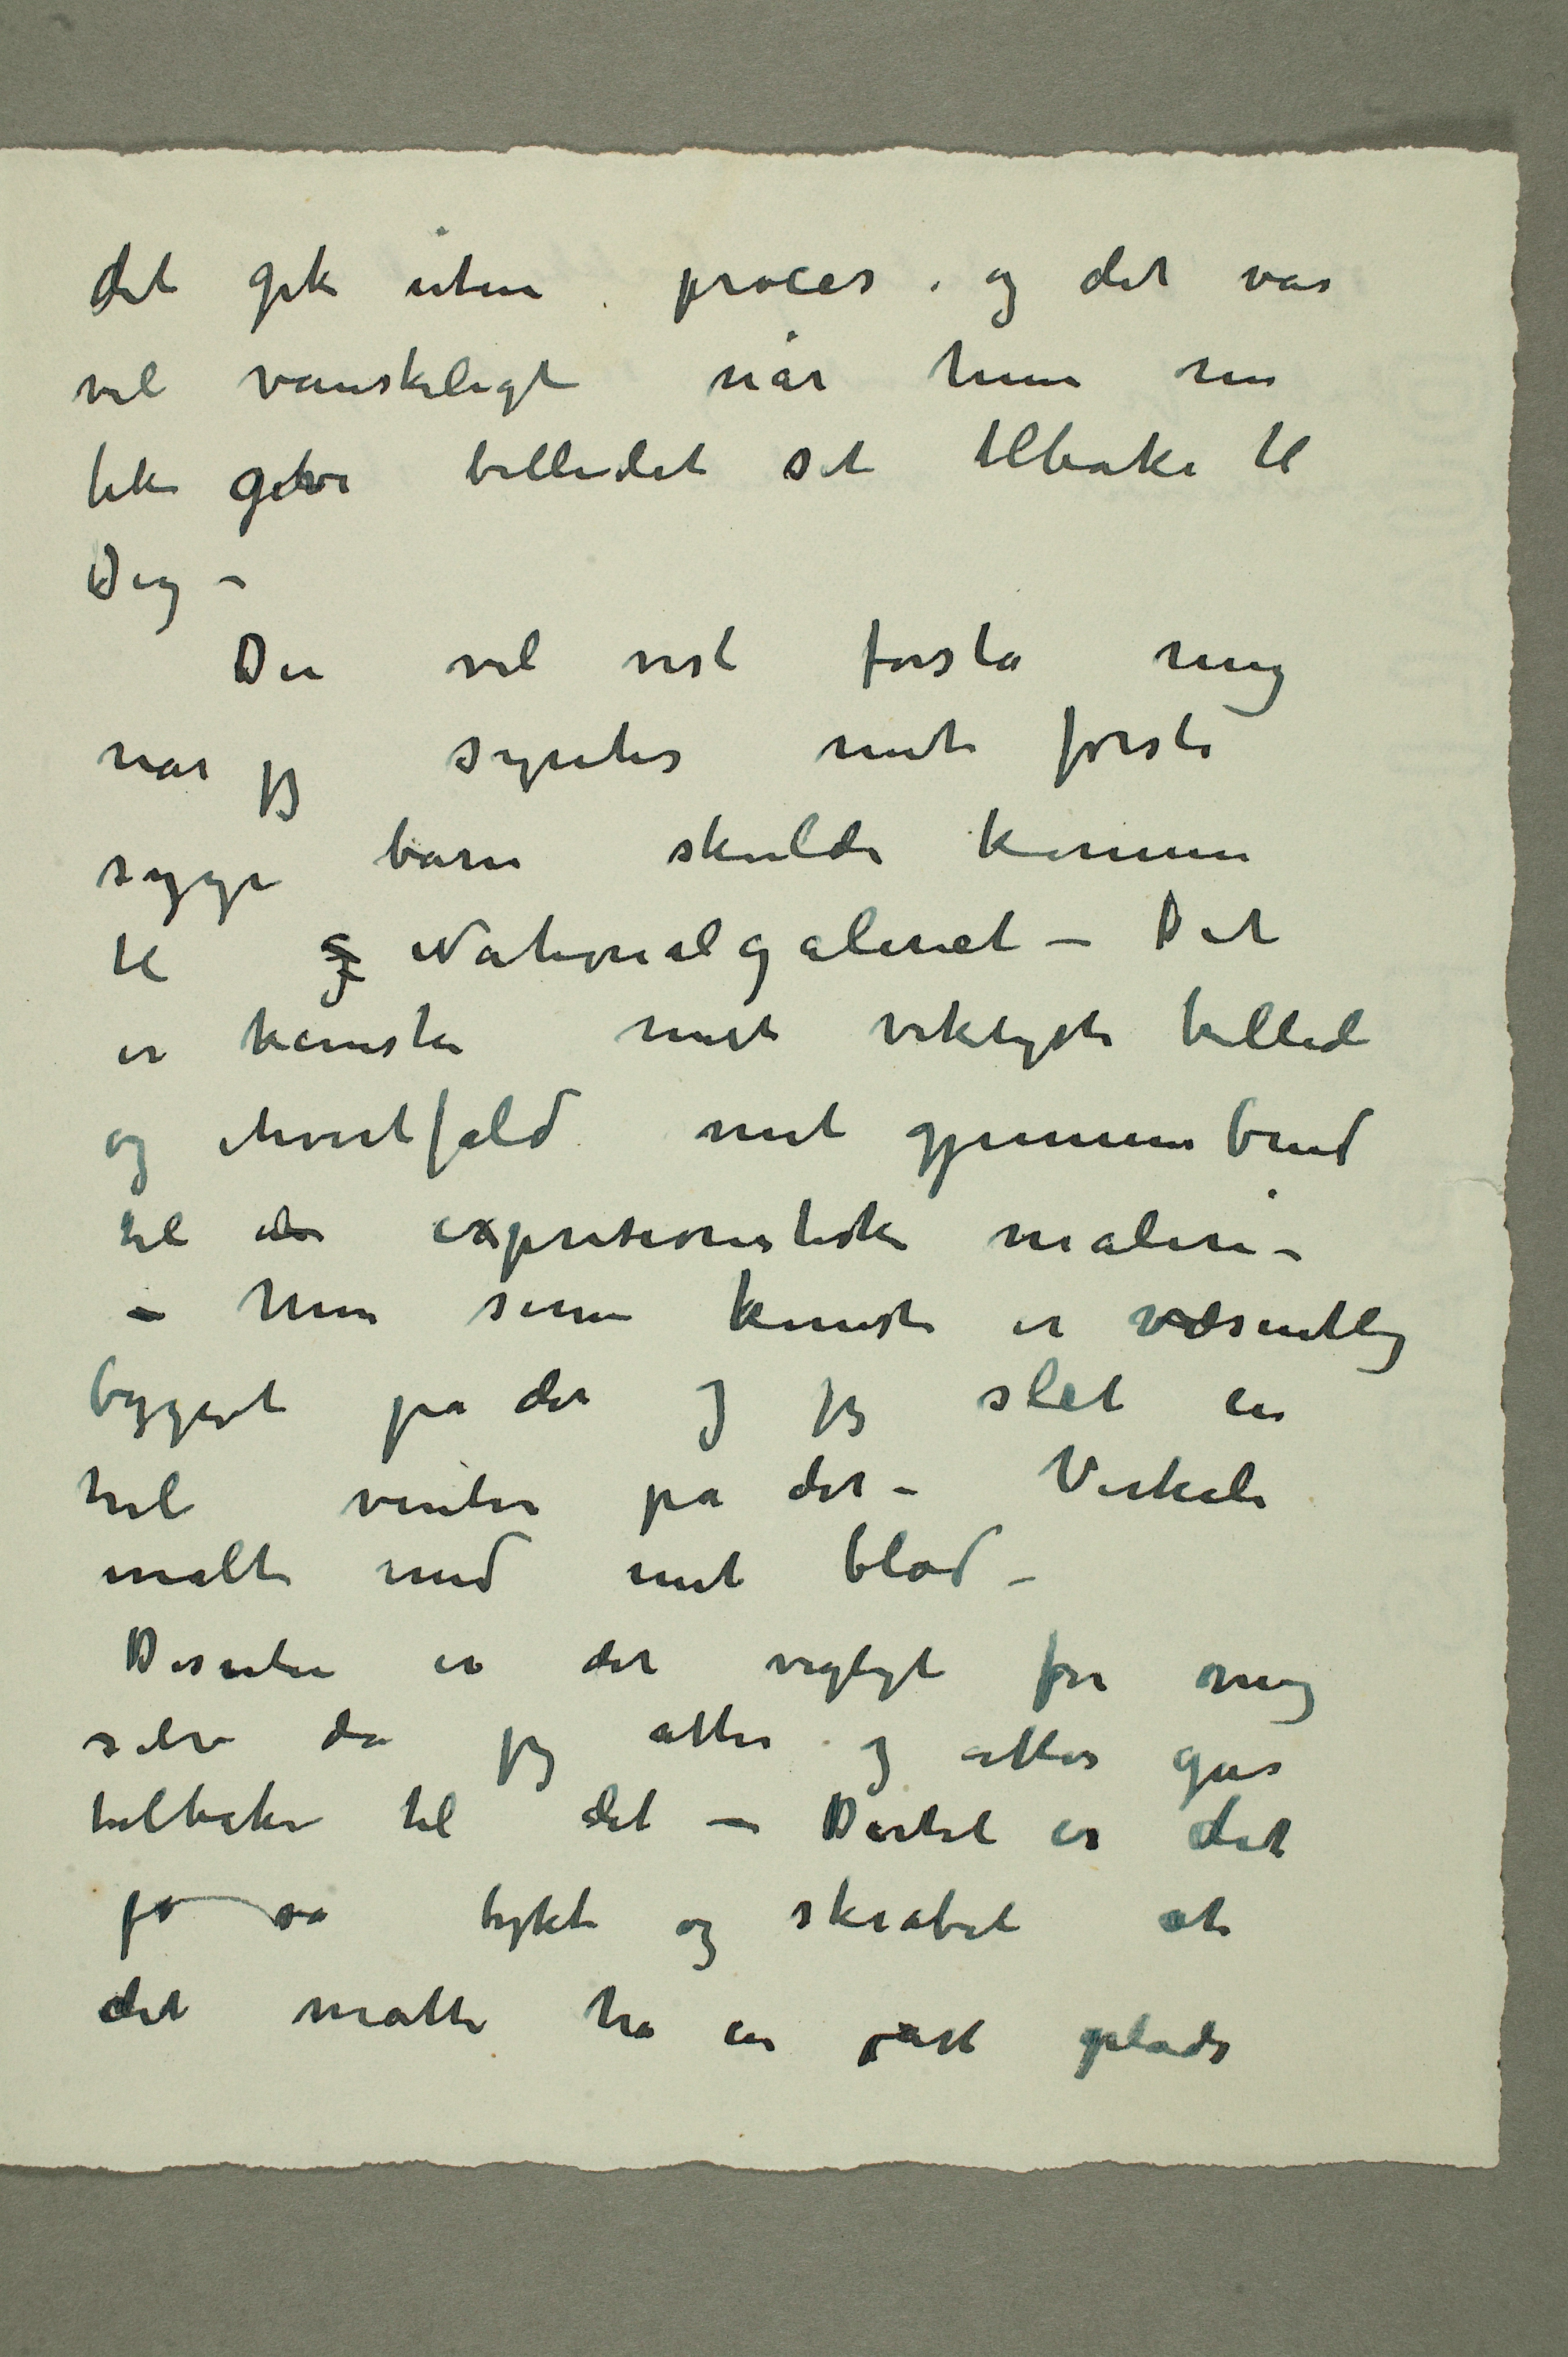 det gik uten proces. og det var
vel vanskeligt når hun nu
fik give billedet sit tilbake til
Dig –
Du vil vist forstå mig
når jeg syntes mit første
syge barn skulde komme
til Nationalgaleriet – Det
er kanske mit viktigste billede
og ihvertfald mit gjennembrud
til den expresionistiske maleri –
– Min senere kunst er væsentlig
bygget på det og jeg slet en
hel vinter på det – Virkeli
malte med mit blod –
Desuten er det vigtigt for mig
selv da jeg atter og atter går
tilbake til det – Dertil er det
jo så tykt og skrabet at
det måtte ha en fast plads